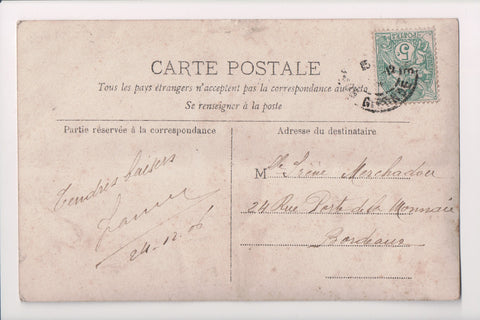 CARTE POSTALE
Tous les pays étrangers n'acceptent pas la correspondance au recto
Se renseigner à la poste
Partie réservée à la correspondance
Adresse du destinataire
Tendres baisers
24-12-06
Mlle Irène Merchadou
24 Rue Porte de la Monnaie
Bordeaux
5
GIRONDE